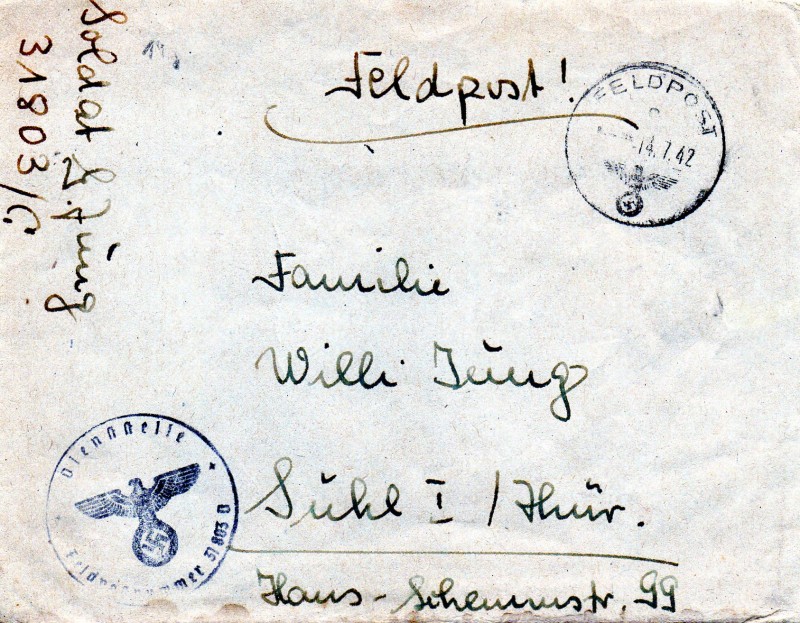 Soldat Jung
31803/C
Feldpost!
FELDPOST
14.7.42
Familie
Willi Jung
Suhl I / Thür.
Hans-Schemmstr. 99
Dienststelle
Feldpostnummer 31 803